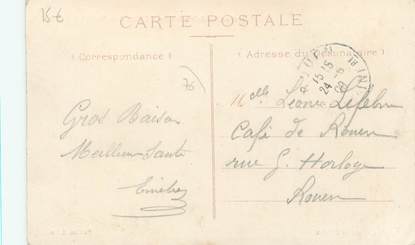 15€
CARTE POSTALE
(Correspondance)
(Adresse du Destinataire)
76
15 15
24 -8
Melle Léonie Lefebvre
Café de Rouen
rue G. Horloge
Rouen
Gros Baiser
Meilleure Santé